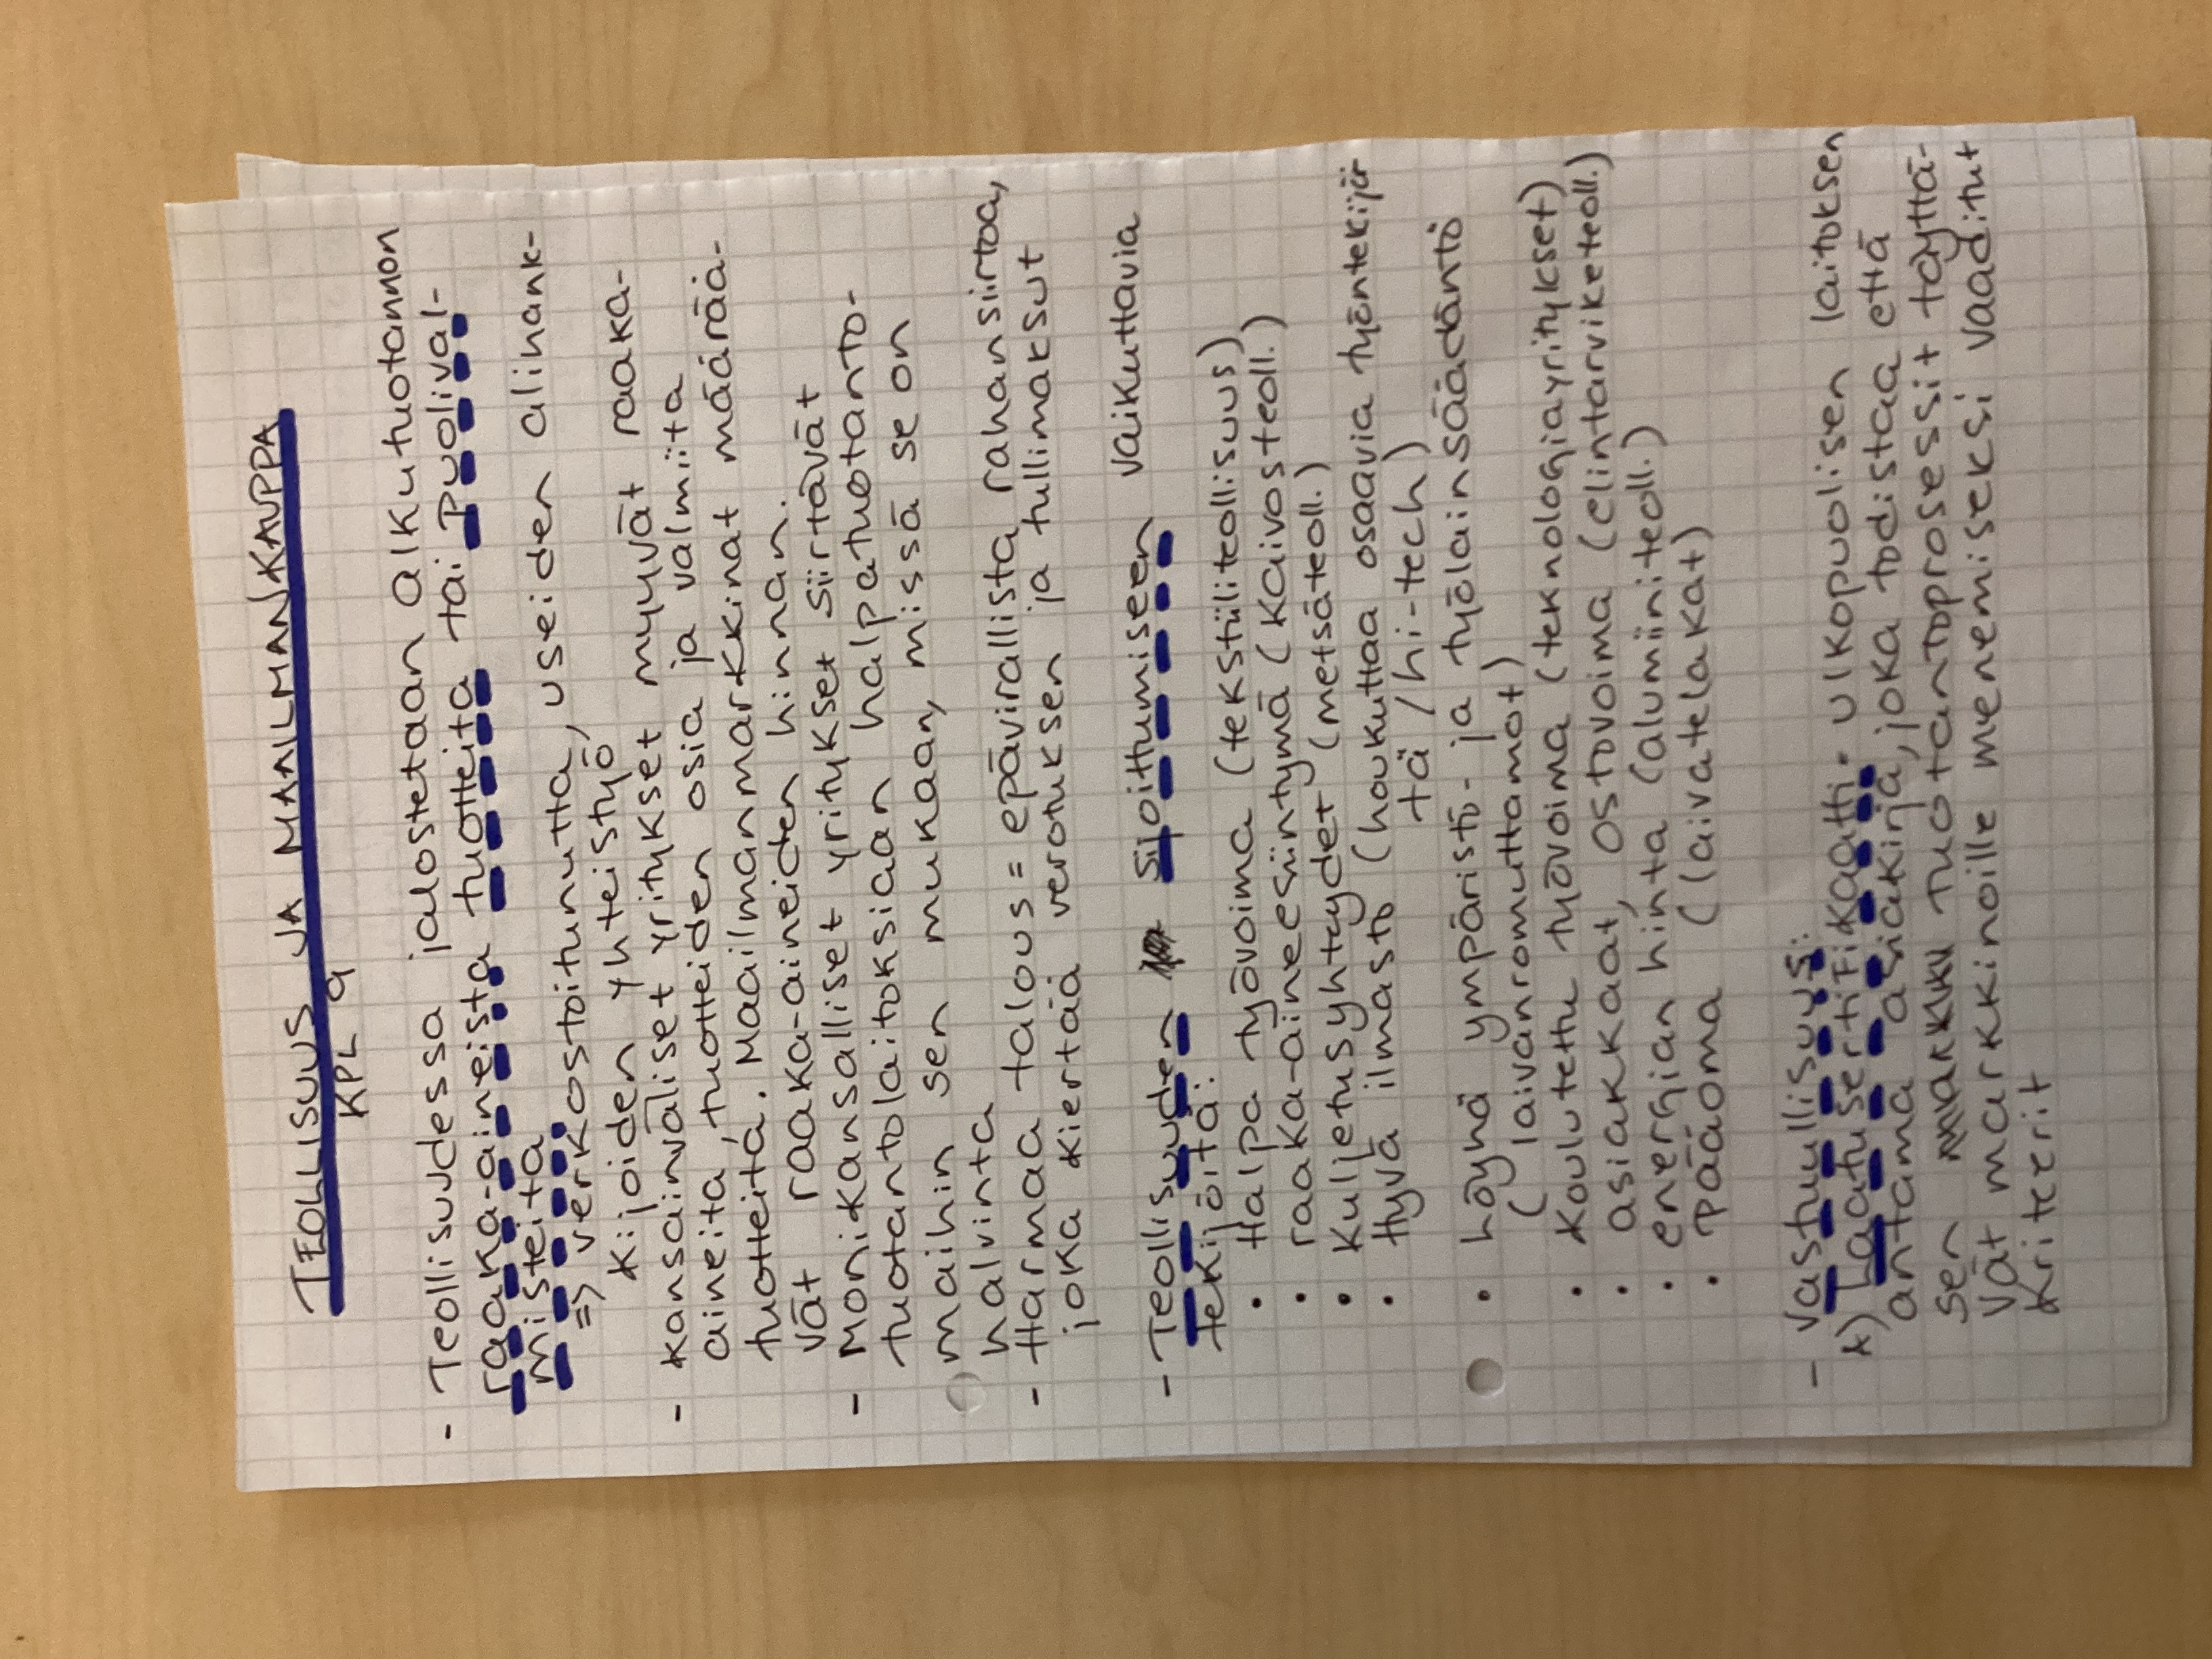 TEOLLISUUS JA MAAILMANKAUPPA
KPL 9
- Teollisuudessa jalostetaan alkutuotannon
raaka-aineista tuotteita tai puolival-
misteita
=> verkostoitunutta, useiden alihank-
kijoiden yhteistyö
- kansainväliset yritykset myyvät raaka-
aineita, tuotteiden osia ja valmiita
tuotteita. Maailmanmarkkinat määrää-
vät raaka-aineiden hinnan.
- Monikansalliset yritykset siirtävät
tuotantolaitoksiaan halpatuotanto-
maihin sen mukaan, missä se on
halvinta
- Harmaa talous = epävirallista rahansiirtoa,
joka kiertää verotuksen ja tullimaksut
- Teollisuuden sijoittumiseen vaikuttavia
tekijöitä:
• Halpa työvoima (tekstiiliteollisuus)
• raaka-aineesiintymä (kaivosteoll.)
• kuljetusyhtydet (metsäteoll.)
• Hyvä ilmasto (houkuttaa osaavia työntekijöi
tä / hi-tech)
• höyhä ympäristö- ja työlainsäädäntö
(laivanromuttamot)
• koulutettu työvoima (teknologiayritykset)
• asiakkaat, ostovoima (elintarviketeoll.)
• energian hinta (alumiiniteoll.)
• pääoma (laivatelakat)
- Vastuullisuus:
*) Laatusertifikaatti - ulkopuolisen laitoksen
antama asiakirja, joka todistaa että
sen tuotantoprosessit täyttä-
vät markkinoille menemiseksi vaaditut
kriteerit